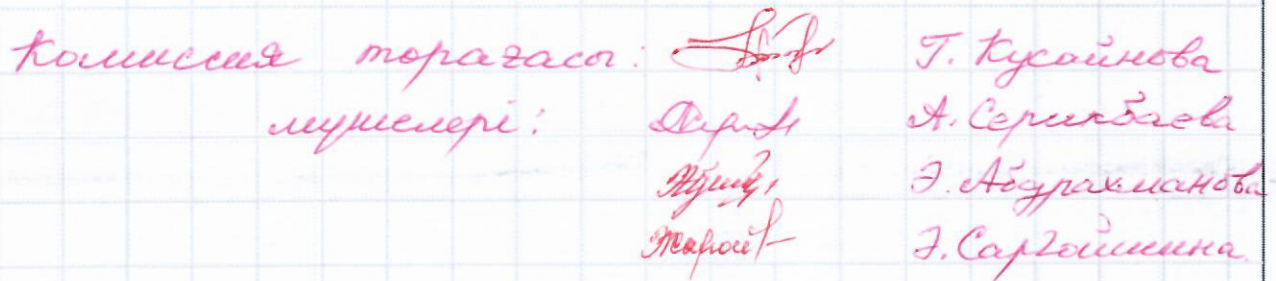 Комиссия торағасы: Г. Кусаинова
мүшелері: А. Серикбаева
Э. Абдрахманова